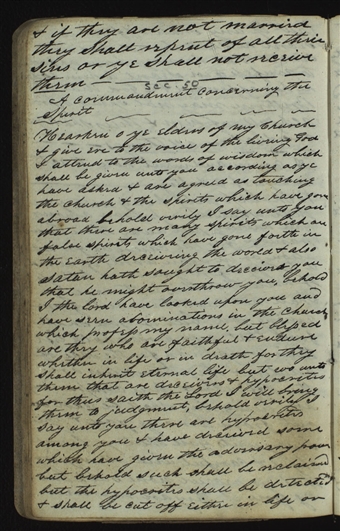 & if they are not married
they shall repent of all their
sins or ye shall not receive
them
SEC. 50
A commandment concerning the
Spirit
Hearken o ye elders of my Church
& give ere to the voice of the living God
& attend to the words of wisdom which
shall be given unto you according as ye
have asked & are agreed as touching
the church & the spirits which have gone
abroad behold verily I say unto you
that there are many spirits which are
false spirits which have gone forth in
the earth deceiveing the world & also
satan hath sought to deceive you
that he might overthrow you, behold
I the lord have looked upon you and
have seen abominations in the church
which profess my name, but blessed
are they who are faithful & endure
whether in life or in death for they
shall inherit eternal life but wo unto
them that are deceivers & hypocrites
for thus saith the Lord I will bring
them to judgment, behold verily I
say unto you there are hypocrites
among you & have deceived some
which have given the adversary power
but behold such shall be reclaimed
but the hypocrites shall be detected
& shall be cut off either in life or